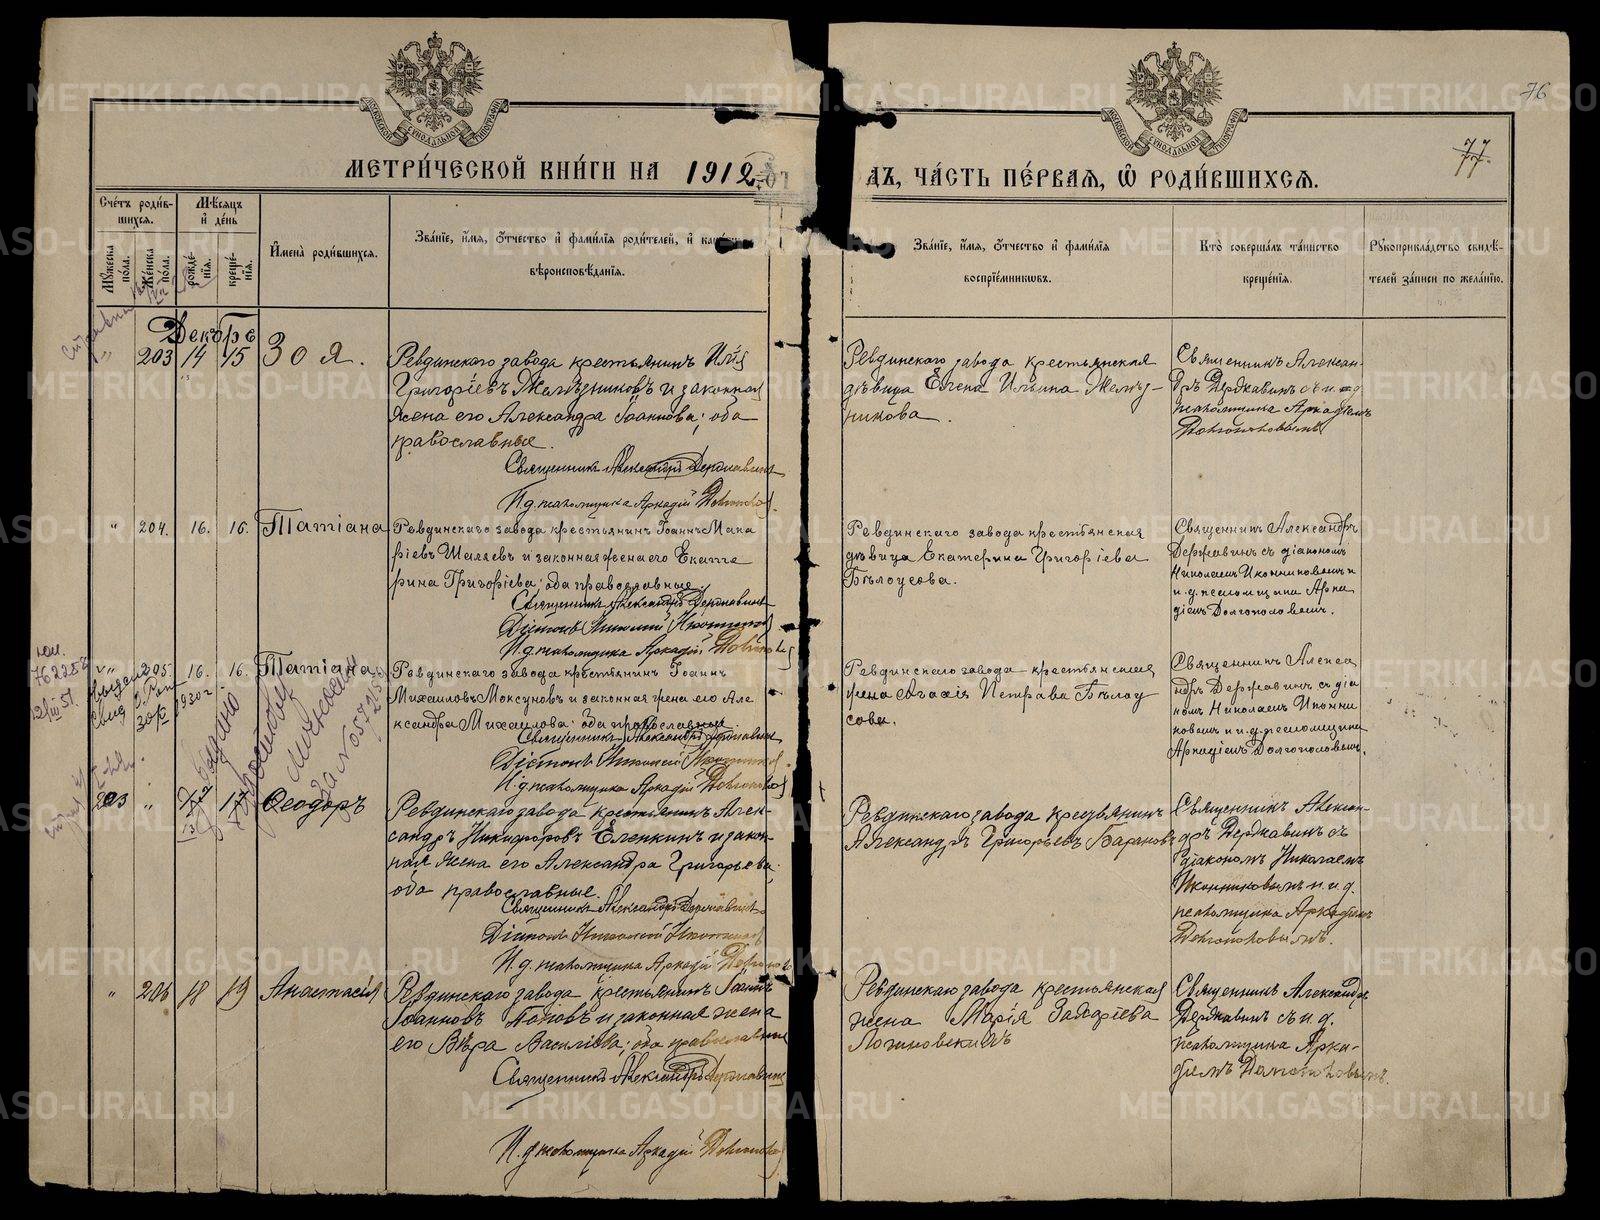 76
77.
МЕТРИ́ЧЕСКОЙ КНИ́ГИ НА 1912
ДЪ, ЧА́СТЬ ПЕ́РВАЯ, Ѿ РОДИ́ВШИХСЯ.
Счéтъ роди́в-
шихся.
Мѣ́сяцъ
и́ де́нь
И҆мена̀ роди́вшихся.
Зва́нїе, и҆́мя, ѻ҆́тчество и҆ фами́лїя роди́телей, и҆
вѣроисповѣ́данїя.
Зва́нїе, и҆́мя, ѻ҆́тчество и҆ фами́лїя
воспрїе́мниковъ.
Кто̀ соверша́лъ та́инство
креще́нїя.
Рꙋкоприкла́дство свидѣ́-
телей за́писи по жела́нїю.
Мꙋ́жеска
по́ла.
Же́нска
по́ла.
рожде́-
нїя.
креще́-
нїя.
Декабрь
" 203 14 15 Зоя.
Ревдинскаго завода крестьянинъ Илія
Григоріевъ Желѣзниковъ и законная
жена его Александра Іоаннова; оба
православные.
Священникъ Александръ Державинъ
И. д. псаломщика Аркадій Долгополовъ
Ревдинскаго завода крестьянская
дѣвица Елена Ильина Желѣз-
никова.
Священникъ Алексан-
дръ Державинъ съ и. д.
псаломщика Аркадіемъ
Долгополовымъ
" 204. 16. 16. Татіана
Ревдинскаго завода крестьянинъ Іоаннъ Мака
ріевъ Шаляевъ и законная жена его Екате
рина Григоріева; оба православные.
Священникъ Александръ Державинъ
Діаконъ Николай Иконниковъ
И. д. псаломщика Аркадій Долгополовъ
Ревдинскаго завода крестьянская
дѣвица Екатерина Григоріева
Бѣлоусова.
Священникъ Александръ
Державинъ съ діакономъ
Николаемъ Иконниковымъ и
и. д. псаломщика Арка
діемъ Долгополовымъ.
" 205. 16. 16. Татіана
Ревдинскаго завода крестьянинъ Іоаннъ
Михаиловъ Моксуновъ и законная жена его Але
ксандра Михаилова; оба православные.
Священникъ Александръ Державинъ
Діаконъ Николай Иконниковъ
И. д. псаломщика Аркадій Долгополовъ
Ревдинскаго завода крестьянская
жена Агафія Петрова Бѣлоу
сова.
Священникъ Алекса
ндръ Державинъ съ діа
кономъ Николаемъ Иконни
ковымъ и и. д. псаломщика
Аркадіемъ Долгополовымъ.
203 " 17 Ѳеодоръ
Ревдинскаго завода крестьянинъ Алек-
сандръ Никифоровъ Еленкинъ и закон-
ная жена его Александра Григорьева;
оба православные.
Священникъ Александръ Державинъ
Діаконъ Николай Иконниковъ
И. д. псаломщика Аркадій Долгополовъ
Ревдинскаго завода крестьянинъ
Александръ Григорьевъ Барановъ
Священникъ Алексан-
дръ Державинъ съ
діакономъ Николаемъ
Иконниковымъ и. д.
псаломщика Аркадіемъ
Долгополовымъ.
" 206 18 19 Анастасія
Ревдинскаго завода крестьянинъ Іоаннъ
Іоанновъ Поповъ и законная жена
его Вѣра Васильева; оба православные
Священникъ Александръ Державинъ
И. д. псаломщика Аркадій Долгополовъ
Ревдинскаго завода крестьянская
жена Марія Захаріева
Логиновскихъ
Священникъ Александръ
Державинъ съ и. д.
псаломщика Арка-
діемъ Долгополовымъ.
METRIKI.GASO-URAL.RU